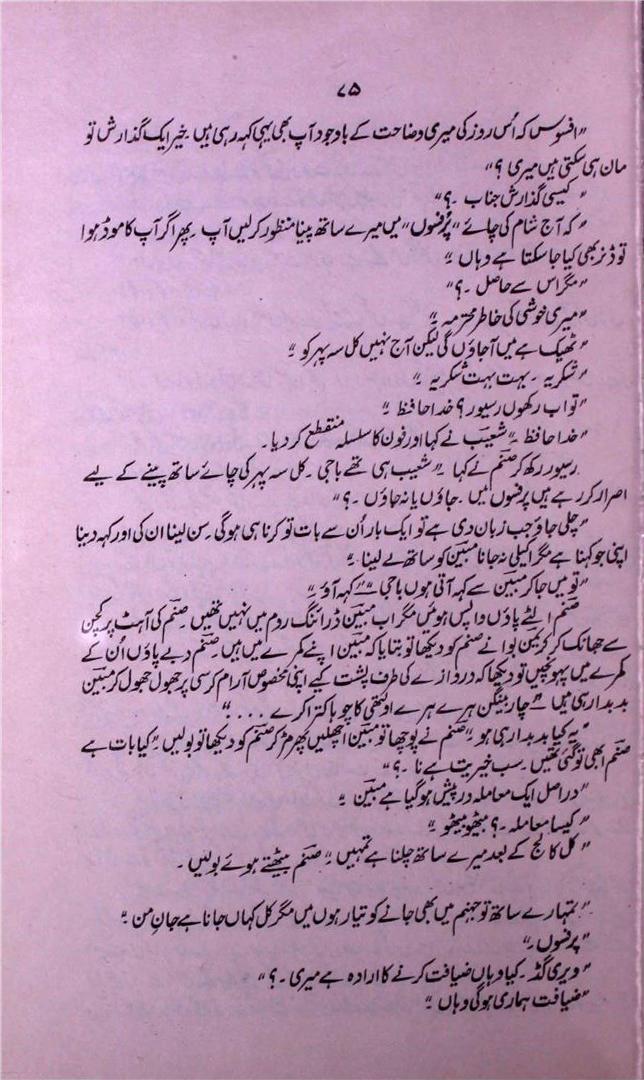 ۷۵
"افسوس کہ اُس روز کی میری وضاحت کے باوجود آپ بھی یہی کہہ رہی ہیں۔ خیر ایک گذارش تو
مان ہی سکتی ہیں میری؟"
"کیسی گذارش جناب۔؟"
"کہ آج شام کی چائے "پُرفسوں" میں میرے ساتھ پینا منظور کرلیں آپ۔ پھر اگر آپ کا موڈ ہوا
تو ڈنر بھی کیا جاسکتا ہے وہاں۔"
"مگر اس سے حاصل۔؟"
"میری خوشی کی خاطر محترمہ۔"
"ٹھیک ہے میں آجاؤں گی لیکن آج نہیں کل سہ پہر کو۔"
"شکریہ۔ بہت بہت شکریہ۔"
"تو اب رکھوں رسیور؟ خدا حافظ۔"
"خدا حافظ۔" شعیب نے کہا اور فون کا سلسلہ منقطع کردیا۔
رسیور رکھ کر صنم نے کہا۔ "شعیب ہی تھے باجی۔ کل سہ پہر کی چائے ساتھ پینے کے لیے
اصرار کر رہے ہیں پرفسوں میں۔ جاؤں یا نہ جاؤں۔؟"
"چلی جاؤ جب زبان دی ہے تو ایک بار اُن سے بات تو کرنا ہی ہوگی۔ سن لینا ان کی اور کہہ دینا
اپنی جو کہنا ہے مگر اکیلی نہ جانا مبین کو ساتھ لے لینا۔"
"تو میں جاکر مبین سے کہہ آتی ہوں باجی۔" "کہہ آؤ۔"
صنم الٹے پاؤں واپس ہوئیں مگر اب مبین ڈرائنگ روم میں نہیں تھیں۔ صنم کی آہٹ پر کچن
سے جھانک کر کریمن بوا نے صنم کو دیکھا تو بتایا کہ مبین اپنے کمرے میں ہیں۔ صنم دبے پاؤں اُن کے
کمرے میں پہونچیں تو دیکھا کہ دروازے کی طرف پشت کیے اپنی مخصوص آرام کرسی پر جھول جھول کر مبین
بدبدا رہی ہیں۔ "چار بینگن ہرے ہرے اولتھی کا چوہا کترا کرے...."
"یہ کیا بدبدا رہی ہو۔" صنم نے پوچھا تو مبین اچھلیں پھر مڑ کر صنم کو دیکھا تو بولیں۔ "کیا بات ہے
صنم ابھی تو گئی تھیں۔ سب خیریت ہے نا۔؟"
"دراصل ایک معاملہ درپیش ہوگیا ہے مبین۔"
"کیسا معاملہ۔؟ بیٹھو بیٹھو۔"
"کل کالج کے بعد میرے ساتھ چلنا ہے تمہیں۔" صنم بیٹھتے ہوئے بولیں۔
"تمہارے ساتھ تو جہنم میں بھی جانے کو تیار ہوں میں مگر کل کہاں جانا ہے جانِ من۔"
"پرفسوں۔"
"ویری گڈ۔ کیا وہاں ضیافت کرنے کا ارادہ ہے میری۔؟"
"ضیافت ہماری ہوگی وہاں۔"